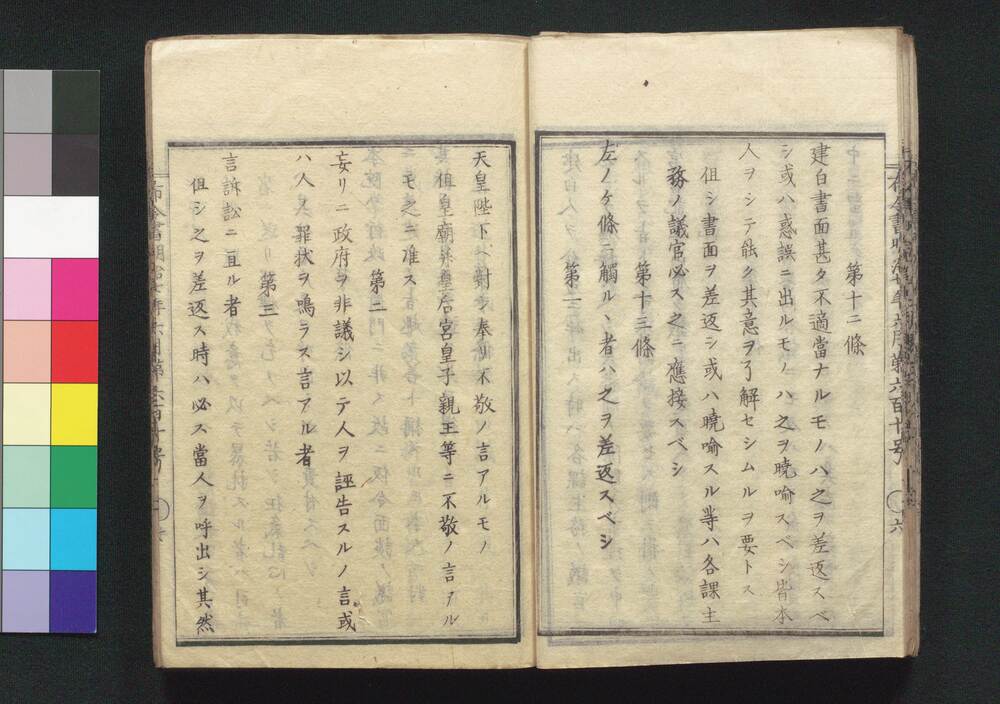 第十二條
建白書面甚タ不適當ナルモノハ之ヲ差返スベ
シ或ハ惑誤ニ出ルモノハ之ヲ曉喩スベシ皆本
人ヲシテ能ク其意ヲ了解セシムルヲ要トス
但シ書面ヲ差返シ或ハ曉喩スル等ハ各課主
務ノ議官必ス之ニ應接スベシ
第十三條
左ノケ條ニ觸ルヽ者ハ之ヲ差返スベシ
第一
天皇陛下ヘ對シ奉リ不敬ノ言アルモノ
其祖皇廟并皇后宮皇子親王等ニ不敬ノ言アル
モ之ニ准ス
第二
妄リニ政府ヲ非議シ以テ人ヲ誣告スルノ言或
ハ人其罪狀ヲ鳴ラス言アル者
第三
言訴訟ニ亘ル者
但シ之ヲ差返ス時ハ必ス當人ヲ呼出シ其然